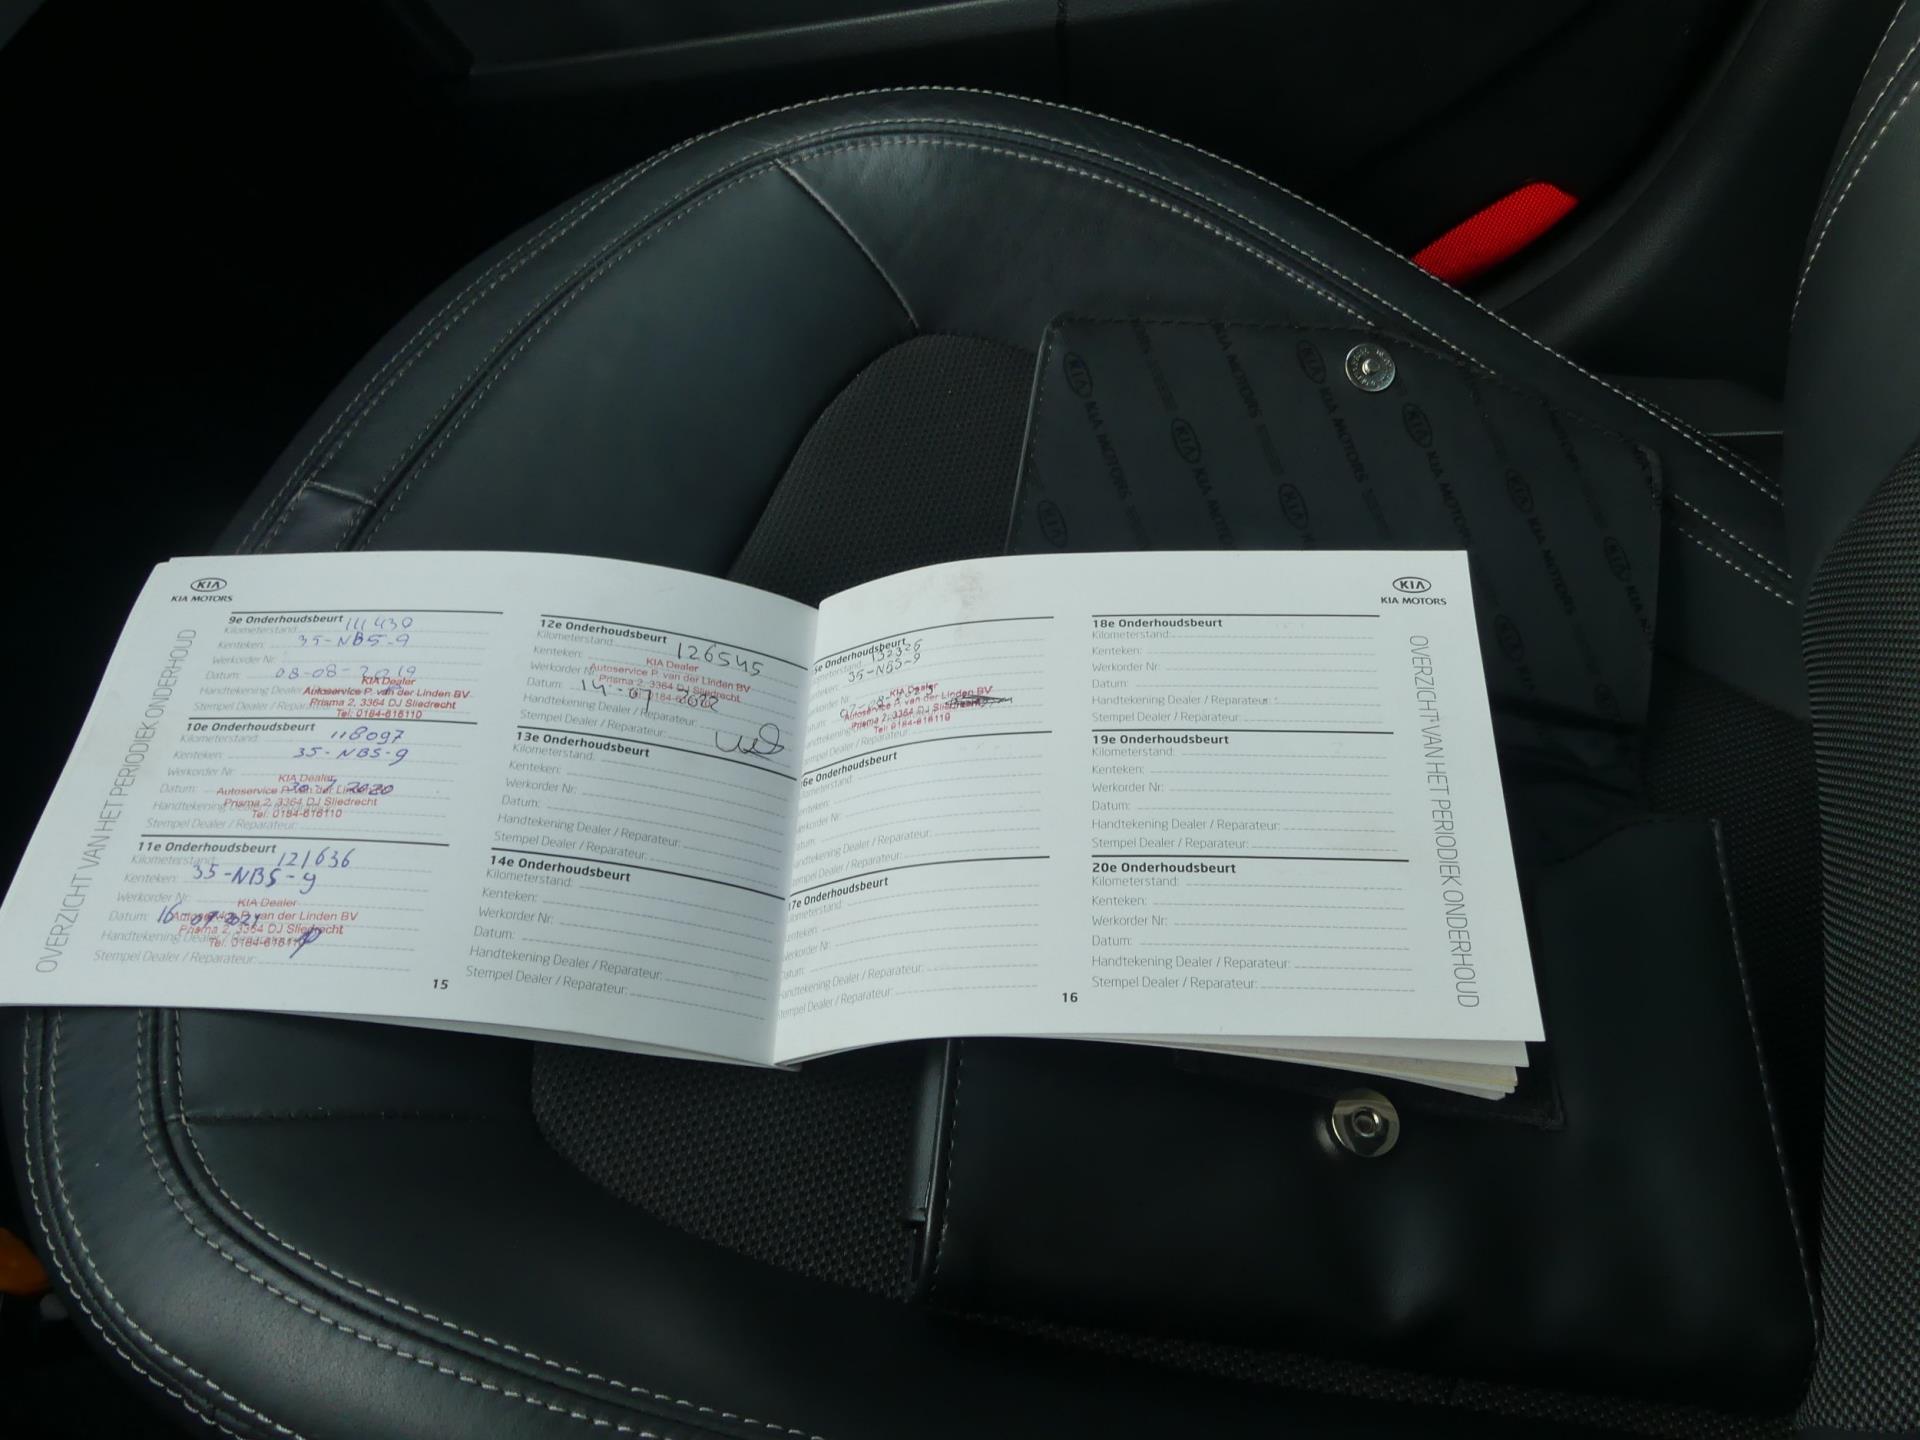 KIA
KIA MOTORS
OVERZICHT VAN HET PERIODIEK ONDERHOUD
9e Onderhoudsbeurt
Kilometerstand: 111430
Kenteken: 35-NBS-9
Werkorder Nr:
Datum: 08-08-2019
Handtekening Dealer
KIA Dealer
Autoservice P. van der Linden BV
Prisma 2, 3364 DJ Sliedrecht
Tel. 0184-616110
Stempel Dealer
10e Onderhoudsbeurt
Kilometerstand: 118097
Kenteken: 35-NBS-9
Werkorder Nr:
Datum: 2020
KIA Dealer
Autoservice P. van der Linden BV
Prisma 2, 3364 DJ Sliedrecht
Tel. 0184-616110
Handtekening Dealer
Stempel Dealer / Reparateur:
11e Onderhoudsbeurt
Kilometerstand: 121636
Kenteken: 35-NBS-9
Werkorder Nr:
Datum: 16-07-2021
KIA Dealer
Autoservice P. van der Linden BV
Prisma 2, 3364 DJ Sliedrecht
Tel. 0184-616110
Handtekening Dealer
Stempel Dealer / Reparateur:
12e Onderhoudsbeurt
Kilometerstand: 126545
Kenteken:
Werkorder Nr:
KIA Dealer
Autoservice P. van der Linden BV
Prisma 2, 3364 DJ Sliedrecht
Tel. 0184-616110
Datum: 14-07 2022
Handtekening Dealer / Reparateur:
Stempel Dealer / Reparateur:
13e Onderhoudsbeurt
Kilometerstand:
Kenteken:
Werkorder Nr:
Datum:
Handtekening Dealer / Reparateur:
Stempel Dealer / Reparateur:
14e Onderhoudsbeurt
Kilometerstand:
Kenteken:
Werkorder Nr:
Datum:
Handtekening Dealer / Reparateur:
Stempel Dealer / Reparateur:
15
Onderhoudsbeurt
132326
35-NBS-9
KIA Dealer
Autoservice P. van der Linden BV
Prisma 2, 3364 DJ Sliedrecht
Tel. 0184-616110
6e Onderhoudsbeurt
Handtekening Dealer / Reparateur:
Stempel Dealer / Reparateur:
17e Onderhoudsbeurt
Kilometerstand:
Kenteken:
Werkorder Nr:
Datum:
Handtekening Dealer / Reparateur:
Stempel Dealer / Reparateur:
18e Onderhoudsbeurt
Kilometerstand:
Kenteken:
Werkorder Nr:
Datum:
Handtekening Dealer / Reparateur:
Stempel Dealer / Reparateur:
19e Onderhoudsbeurt
Kilometerstand:
Kenteken:
Werkorder Nr:
Datum:
Handtekening Dealer / Reparateur:
Stempel Dealer / Reparateur:
20e Onderhoudsbeurt
Kilometerstand:
Kenteken:
Werkorder Nr:
Datum:
Handtekening Dealer / Reparateur:
Stempel Dealer / Reparateur:
16
KIA
KIA MOTORS
OVERZICHT VAN HET PERIODIEK ONDERHOUD
KIA KIA MOTORS